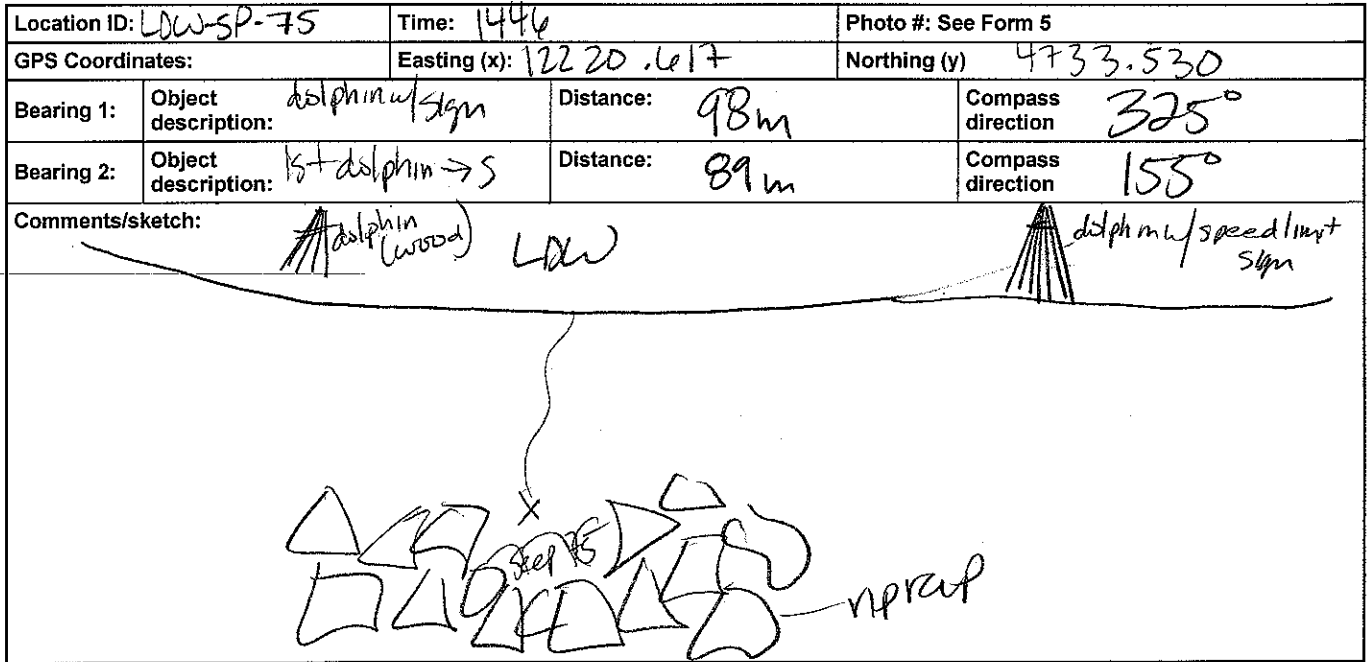 Location ID: LDW-SP-75 Time: 1446 Photo #: See Form 5
GPS Coordinates: Easting (x): 12220.617 Northing (y) 4733.530
Bearing 1: Object description: dolphin w/ sign Distance: 98m Compass direction 325°
Bearing 2: Object description: 1st dolphin → S Distance: 89m Compass direction 155°
Comments/sketch:
dolphin (wood)
LDW
dolphin w/ speed limit sign
X
Seep 75
riprap